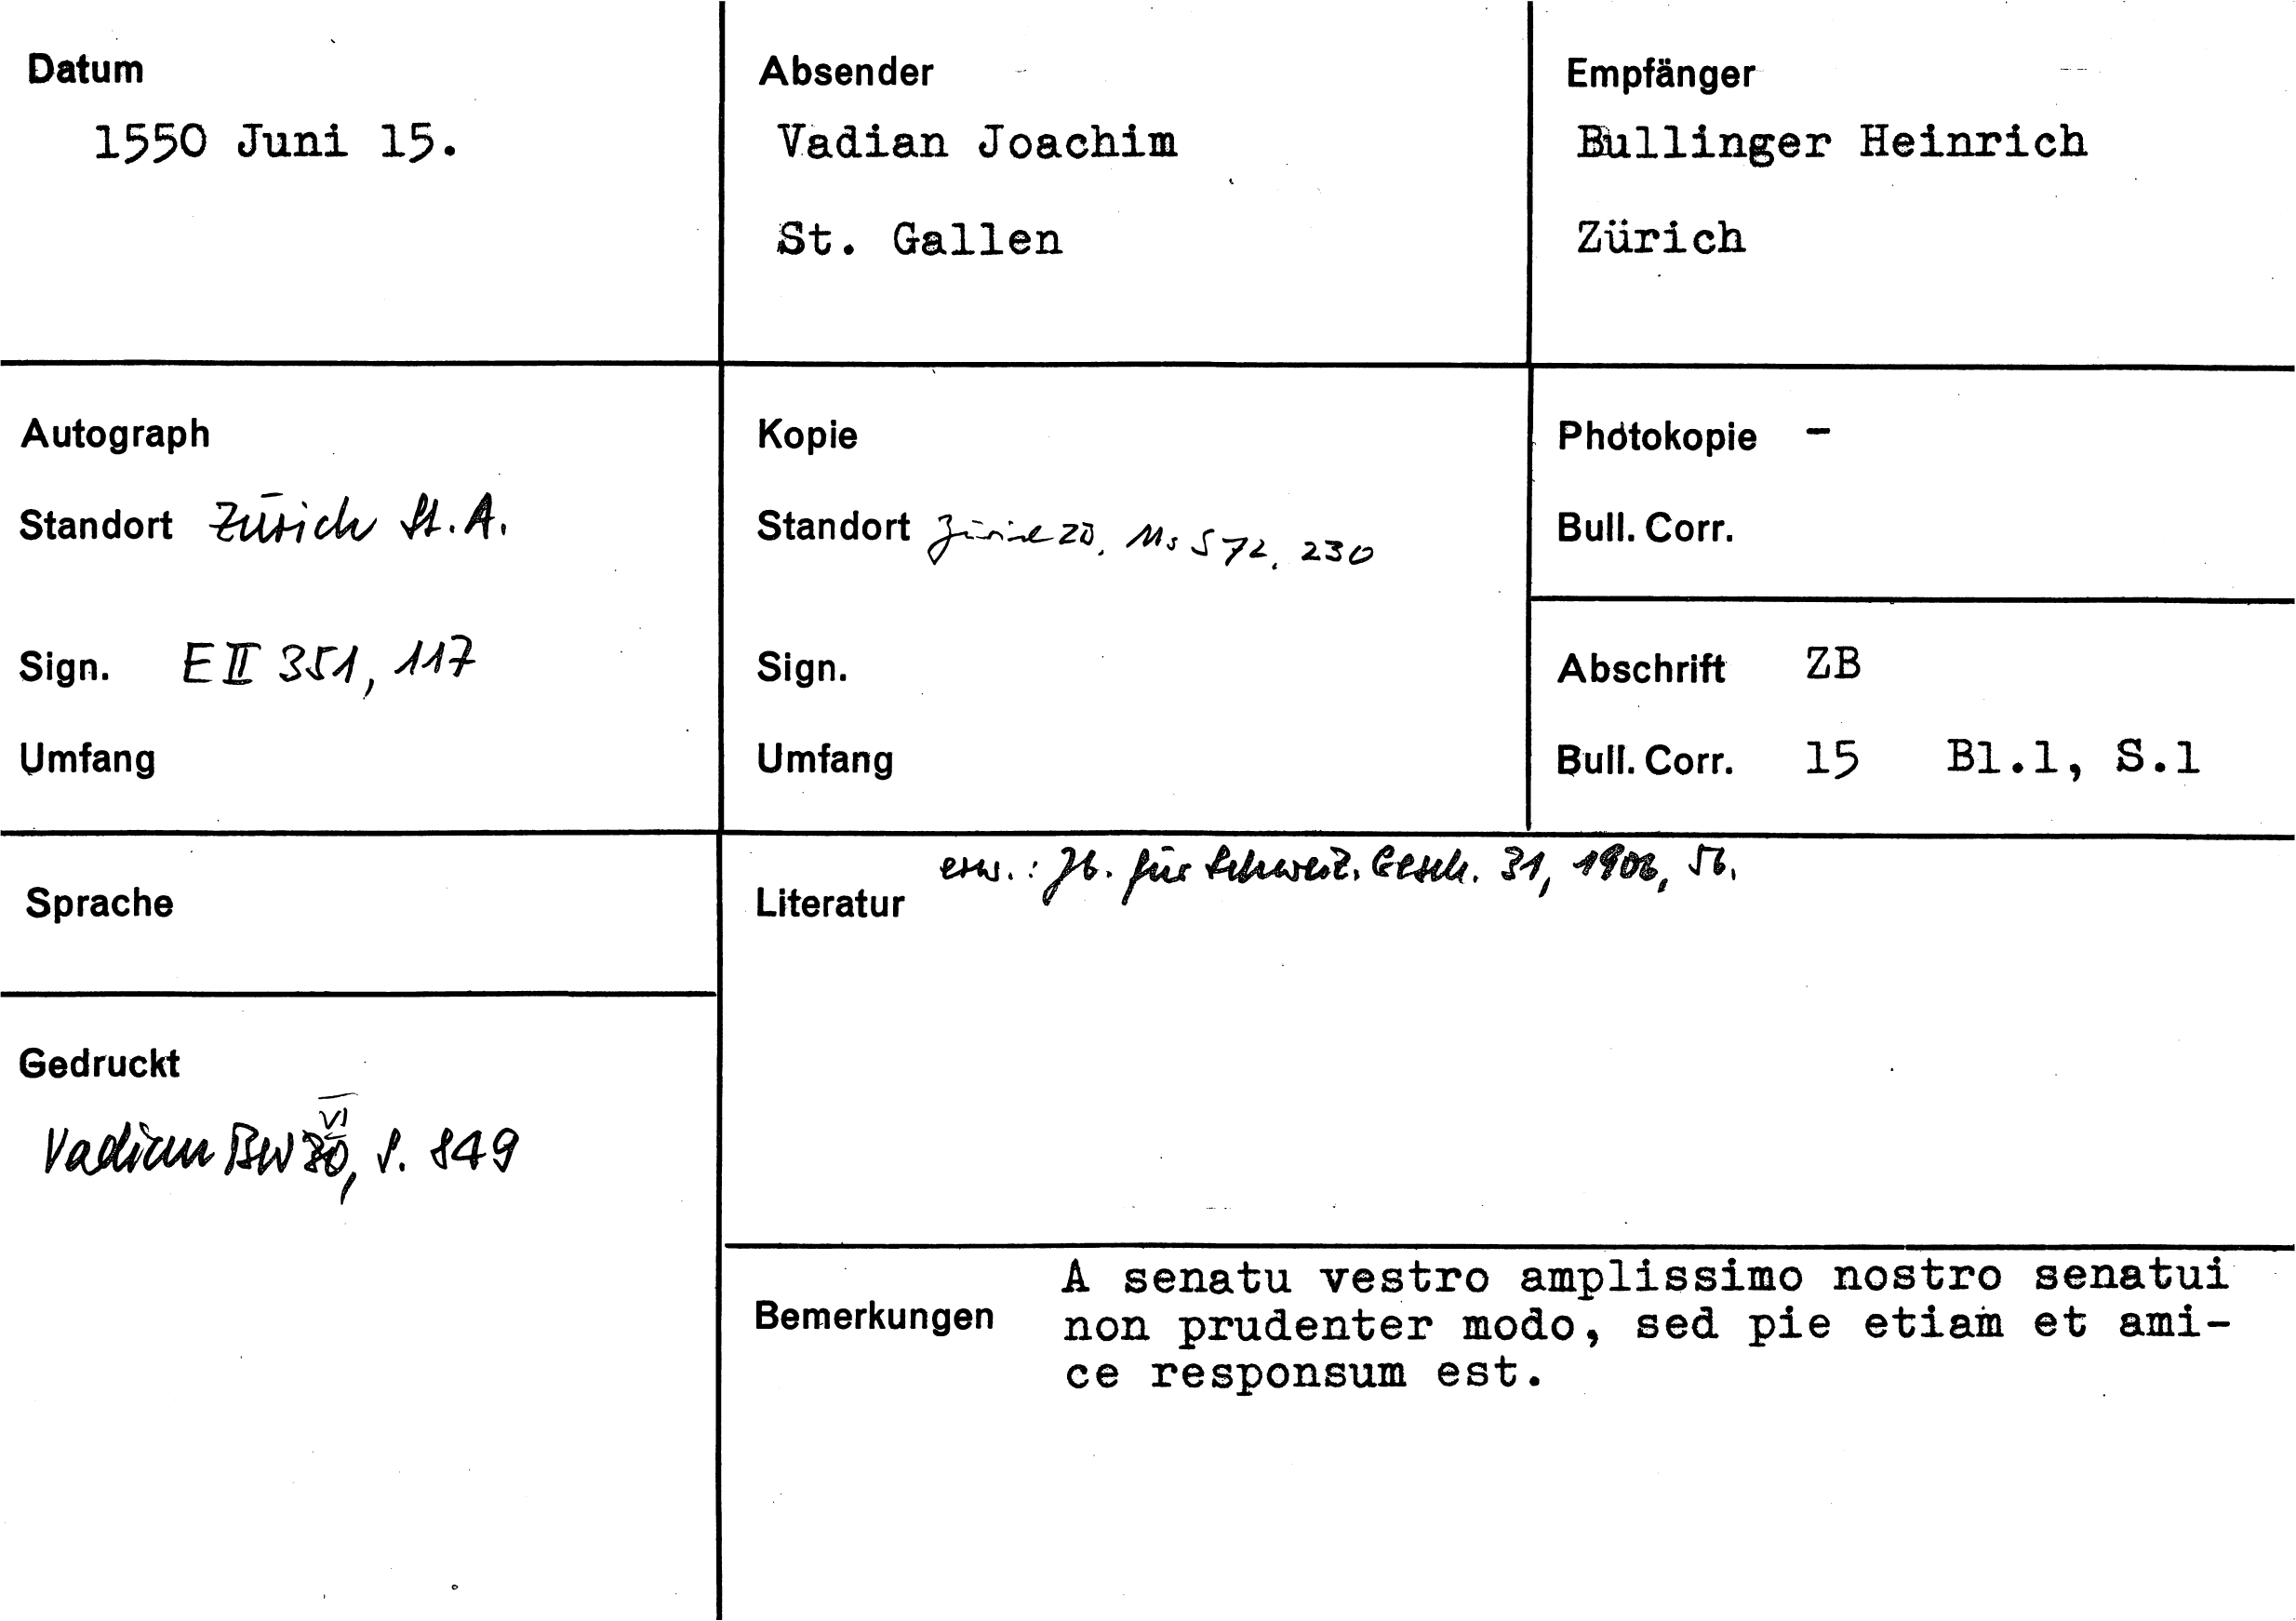 Datum
1550 Juni 15.
Absender
Vadian Joachim
St. Gallen
Empfänger
Bullinger Heinrich
Zürich
Autograph
Standort Zürich St.A.
Sign. E II 351, 117
Umfang
Kopie
Standort Zürich ZB, Ms S 72, 230
Sign.
Umfang
Photokopie -
Bull. Corr.
Abschrift ZB
Bull. Corr. 15 Bl.1, S.1
Sprache
Gedruckt
Vadian BW VI, S. 849
Literatur erw.: Jb. für Schweiz. Gesch. 31, 1906, 56.
Bemerkungen
A senatu vestro amplissimo nostro senatui
non prudenter modo, sed pie etiam et ami-
ce responsum est.